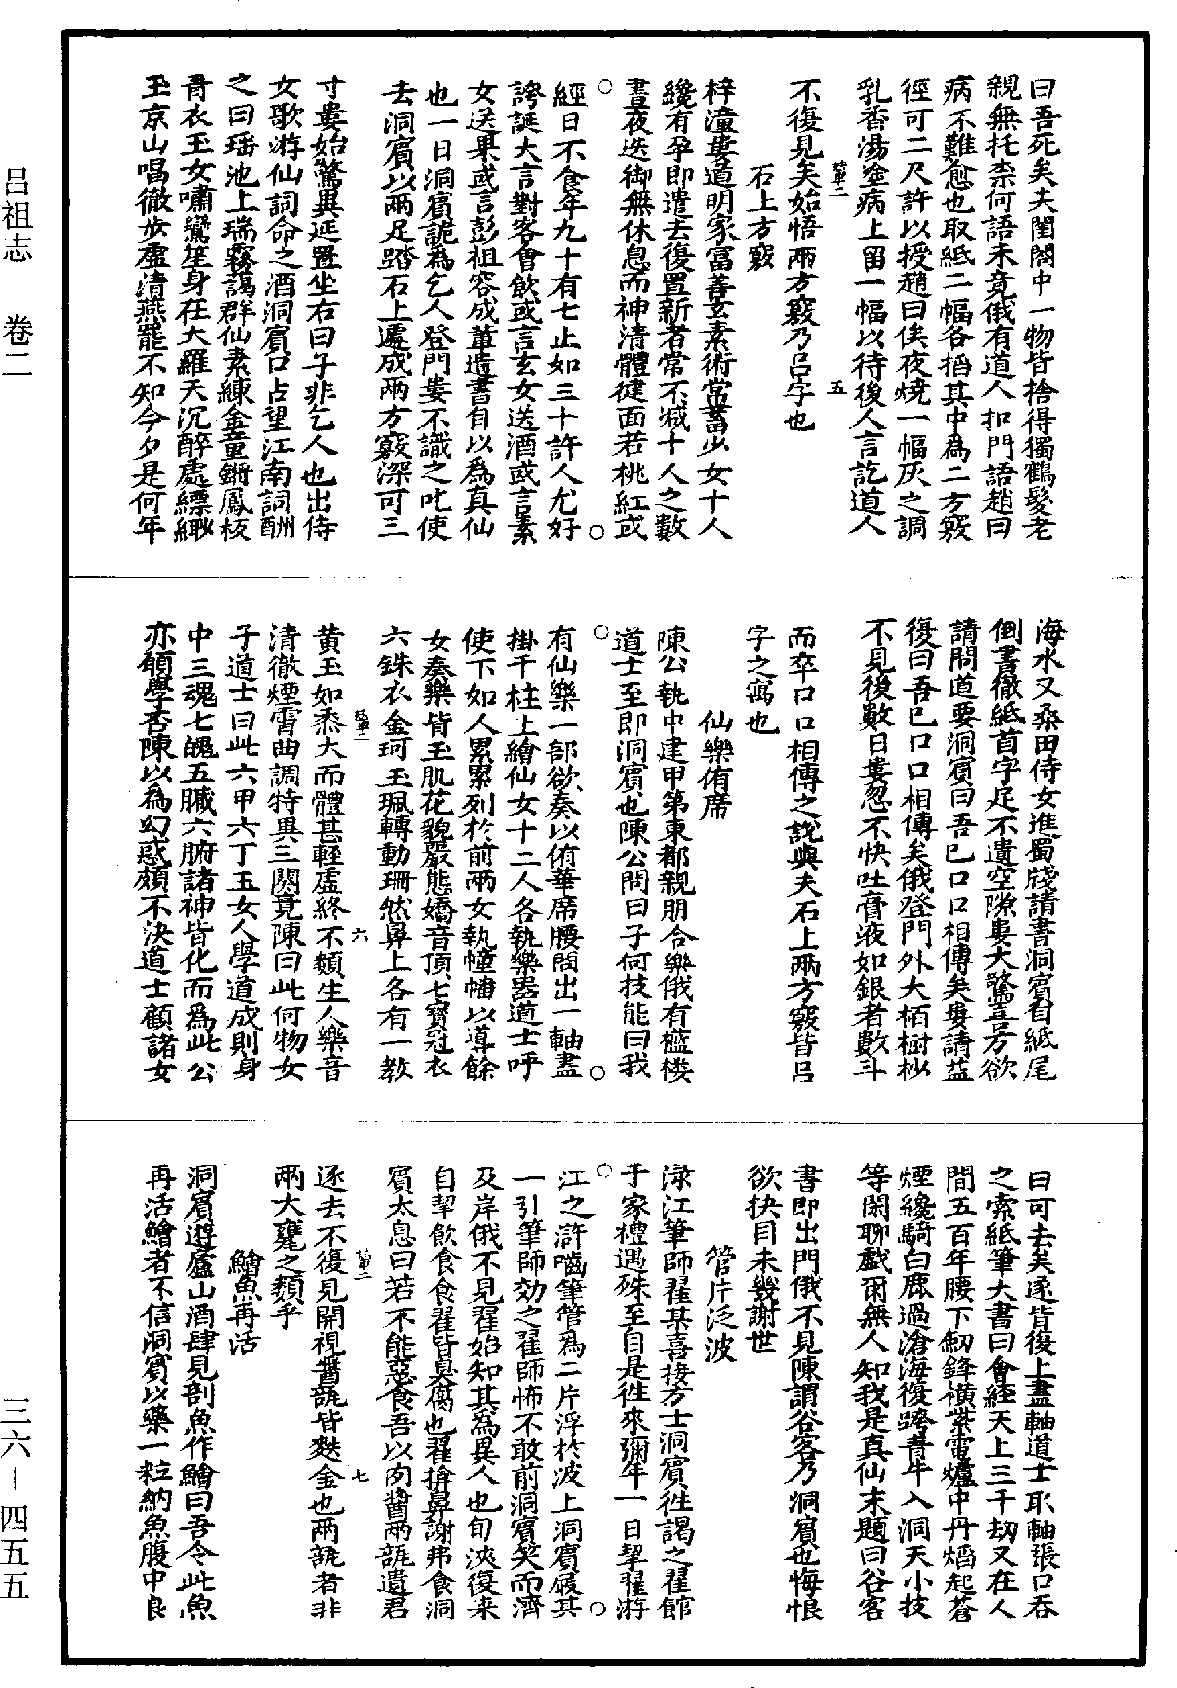 呂祖志 卷二
曰吾死矣夫閨閤中一物皆捨得獨鶴髮老
親無托柰何語未竟俄有道人扣門語趙曰
病不難愈也取紙二幅各掐其中為二方竅
徑可二尺許以授趙曰俟夜燒一幅灰之調
乳香湯塗病上留一幅以待後人言訖道人
不復見矣始悟兩方竅乃呂字也
石上方竅
梓潼婁道明家富善玄素術常蓄少女十人
纔有孕即遣去復置新者常不減十人之數
晝夜迭御無休息而神清體健面若桃紅或
經日不食年九十有七止如三十許人尤好
誇誕大言對客會飲或言玄女送酒或言素
女送果或言彭祖容成輩遺書自以為真仙
也一日洞賓詭為乞人登門婁不識之叱使
去洞賓以兩足踏石上遽成兩方竅深可三
寸婁始驚異延置坐右曰子非乞人也出侍
女歌游仙詞命之酒洞賓口占望江南詞酬
之曰瑶池上瑞霧藹群仙素練金童鏘鳳板
青衣玉女嘯鸞笙身在大羅天沉醉處縹緲
玉京山唱徹步虛清燕罷不知今夕是何年
海水又桑田侍女進蜀牋請書洞賓自紙尾
倒書徹紙首字足不遺空隙婁大驚喜方欲
請問道要洞賓曰吾已口口相傳矣婁請益
復曰吾已口口相傳矣俄登門外大栢樹杪
不見後數日婁忽不快吐膏液如銀者數斗
而卒口口相傳之說與夫石上兩方竅皆呂
字之寓也
仙樂侑席
陳公執中建甲第東都親朋合樂俄有襤褸
道士至即洞賓也陳公問曰子何技能曰我
有仙樂一部欲奏以侑華席腰間出一軸畫
掛于柱上繪仙女十二人各執樂器道士呼
使下如人累累列於前兩女執幢幡以導餘
女奏樂皆玉肌花貌嚴態嬌音頂七寶冠衣
六銖衣金珂玉珮轉動珊然鼻上各有一教
黃玉如黍大而體甚輕虛終不類生人樂音
清徹煙霄曲調特異三闋竟陳曰此何物女
子道士曰此六甲六丁玉女人學道成則身
中三魂七魄五臟六腑諸神皆化而為此公
亦願學否陳以為幻惑頗不決道士顧諸女
曰可去矣遂皆復上畫軸道士取軸張口吞
之索紙筆大書曰會經天上三千劫又在人
間五百年腰下劒鋒橫紫電爐中丹熖起蒼
煙纔騎白鹿過滄海復跨青牛入洞天小技
等閑聊戲爾無人知我是真仙末題曰谷客
書即出門俄不見陳謂谷客乃洞賓也悔恨
欲抉目未幾謝世
管片泛波
淥江筆師翟某喜接方士洞賓徃謁之翟館
于家禮遇殊至自是徃來彌年一日挈翟游
江之滸嚙筆管為二片浮於波上洞賓履其
一引筆師効之翟師怖不敢前洞賓笑而濟
及岸俄不見翟始知其為異人也旬浹復來
自挈飲食食翟皆臭腐也翟揜鼻謝弗食洞
賓太息曰若不能惡食吾以肉醬兩瓿遺君
逐去不復見開視醬瓿皆麩金也兩瓿者非
兩大甕之類乎
鱠魚再活
洞賓遊廬山酒肆見剖魚作鱠曰吾令此魚
再活鱠者不信洞賓以藥一粒納魚腹中良
三六－四五五